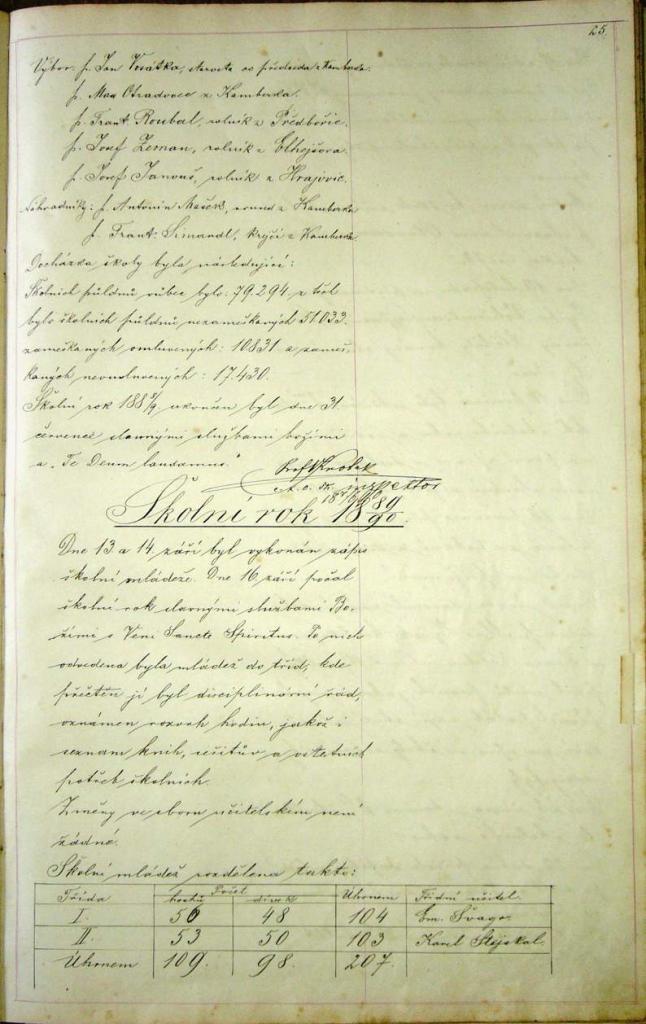 25.
Výbor: p. Jan Vosátka, starosta co předseda z Kamberka.
p. Max Ctradovec z Kamberka.
p. Frant. Roubal, rolník z Předbořic.
p. Josef Zeman, rolník z
p. Josef Janouš, rolník z Hrajovic.
Náhradníky: p. Antonín Mašek, z Kamberka
p. Frant. Simandl, krejčí z Kamberka
Docházka školy byla následující:
Školních půldnů vůbec bylo: 79.294 z těch
bylo školních půldnů nezameškaných 51033.
zameškaných omluvených: 10831 a zameš-
kaných neomluvených: 17.430.
Školní rok 1888/9 ukončen byl dne 31.
července slavnými službami božími
a „Te Deum laudamus."
Prof.
c. k. ok. inspektor
Školní rok 1889/90.
Dne 13. a 14. září byl vykonán zápis
školní mládeže. Dne 16. září počal
školní rok slavnými službami Bo-
žími s Veni Sancte Spiritus. Po nich
odvedena byla mládež do tříd, kde
přečten jí byl disciplinární řád,
oznámen rozvrh hodin, jakož i
seznam knih, sešitův a ostatních
potřeb školních.
Změny ve sboru učitelském není
žádné.
Školní mládež rozdělena takto:
Třída Počet Úhrnem Třídní učitel
hochů dívek
I. 56 48 104 Em. Švagr.
II. 53 50 103 Karel Stejskal.
Úhrnem 109. 98. 207.